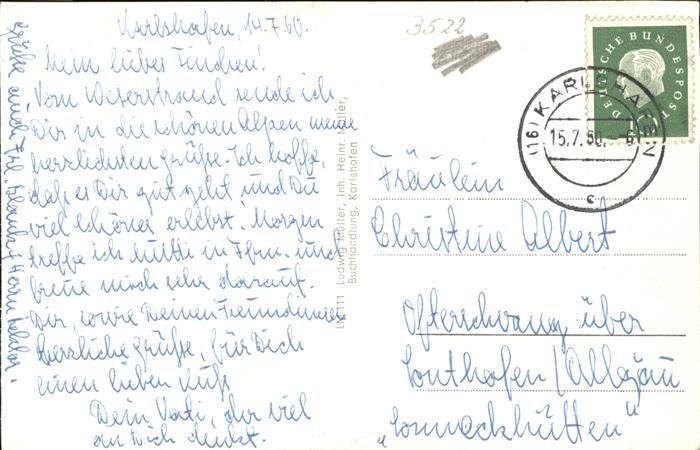 Karlshafen, 14.7.60.
Mein liebes Tinchen!
Vom Weserstrand sende ich
Dir in die schönen Alpen meine
herzlichsten Grüße. Ich hoffe,
daß es Dir gut geht und Du
viel Schönes erlebst. Morgen
treffe ich Mutti in Hbn. und
freue mich sehr darauf.
Dir, sowie Deinen Freundinnen
herzliche Grüße, für Dich
einen lieben Kuß
Dein Vati, der viel
an Dich denkt.
Grüße auch Frl. und Herrn
LM 111 Ludwig Müller, Inh. Heinr. Müller,
Buchhandlung, Karlshafen
3522
DEUTSCHE BUNDESPOST
(16) KARLSHAFEN
15.7.60.-6
c
Fräulein
Christine Albert
Ofterschwang über
Sonthofen/Allgäu
„Sonneckhütten"